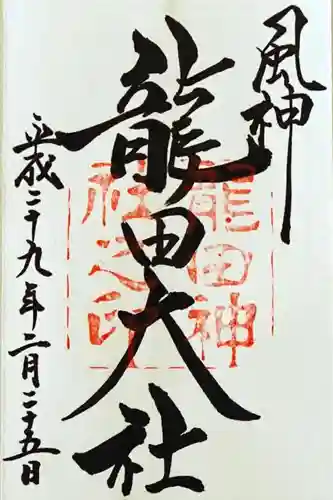 風神
龍田大社
龍田神
社之印
平成二十九年二月二十五日